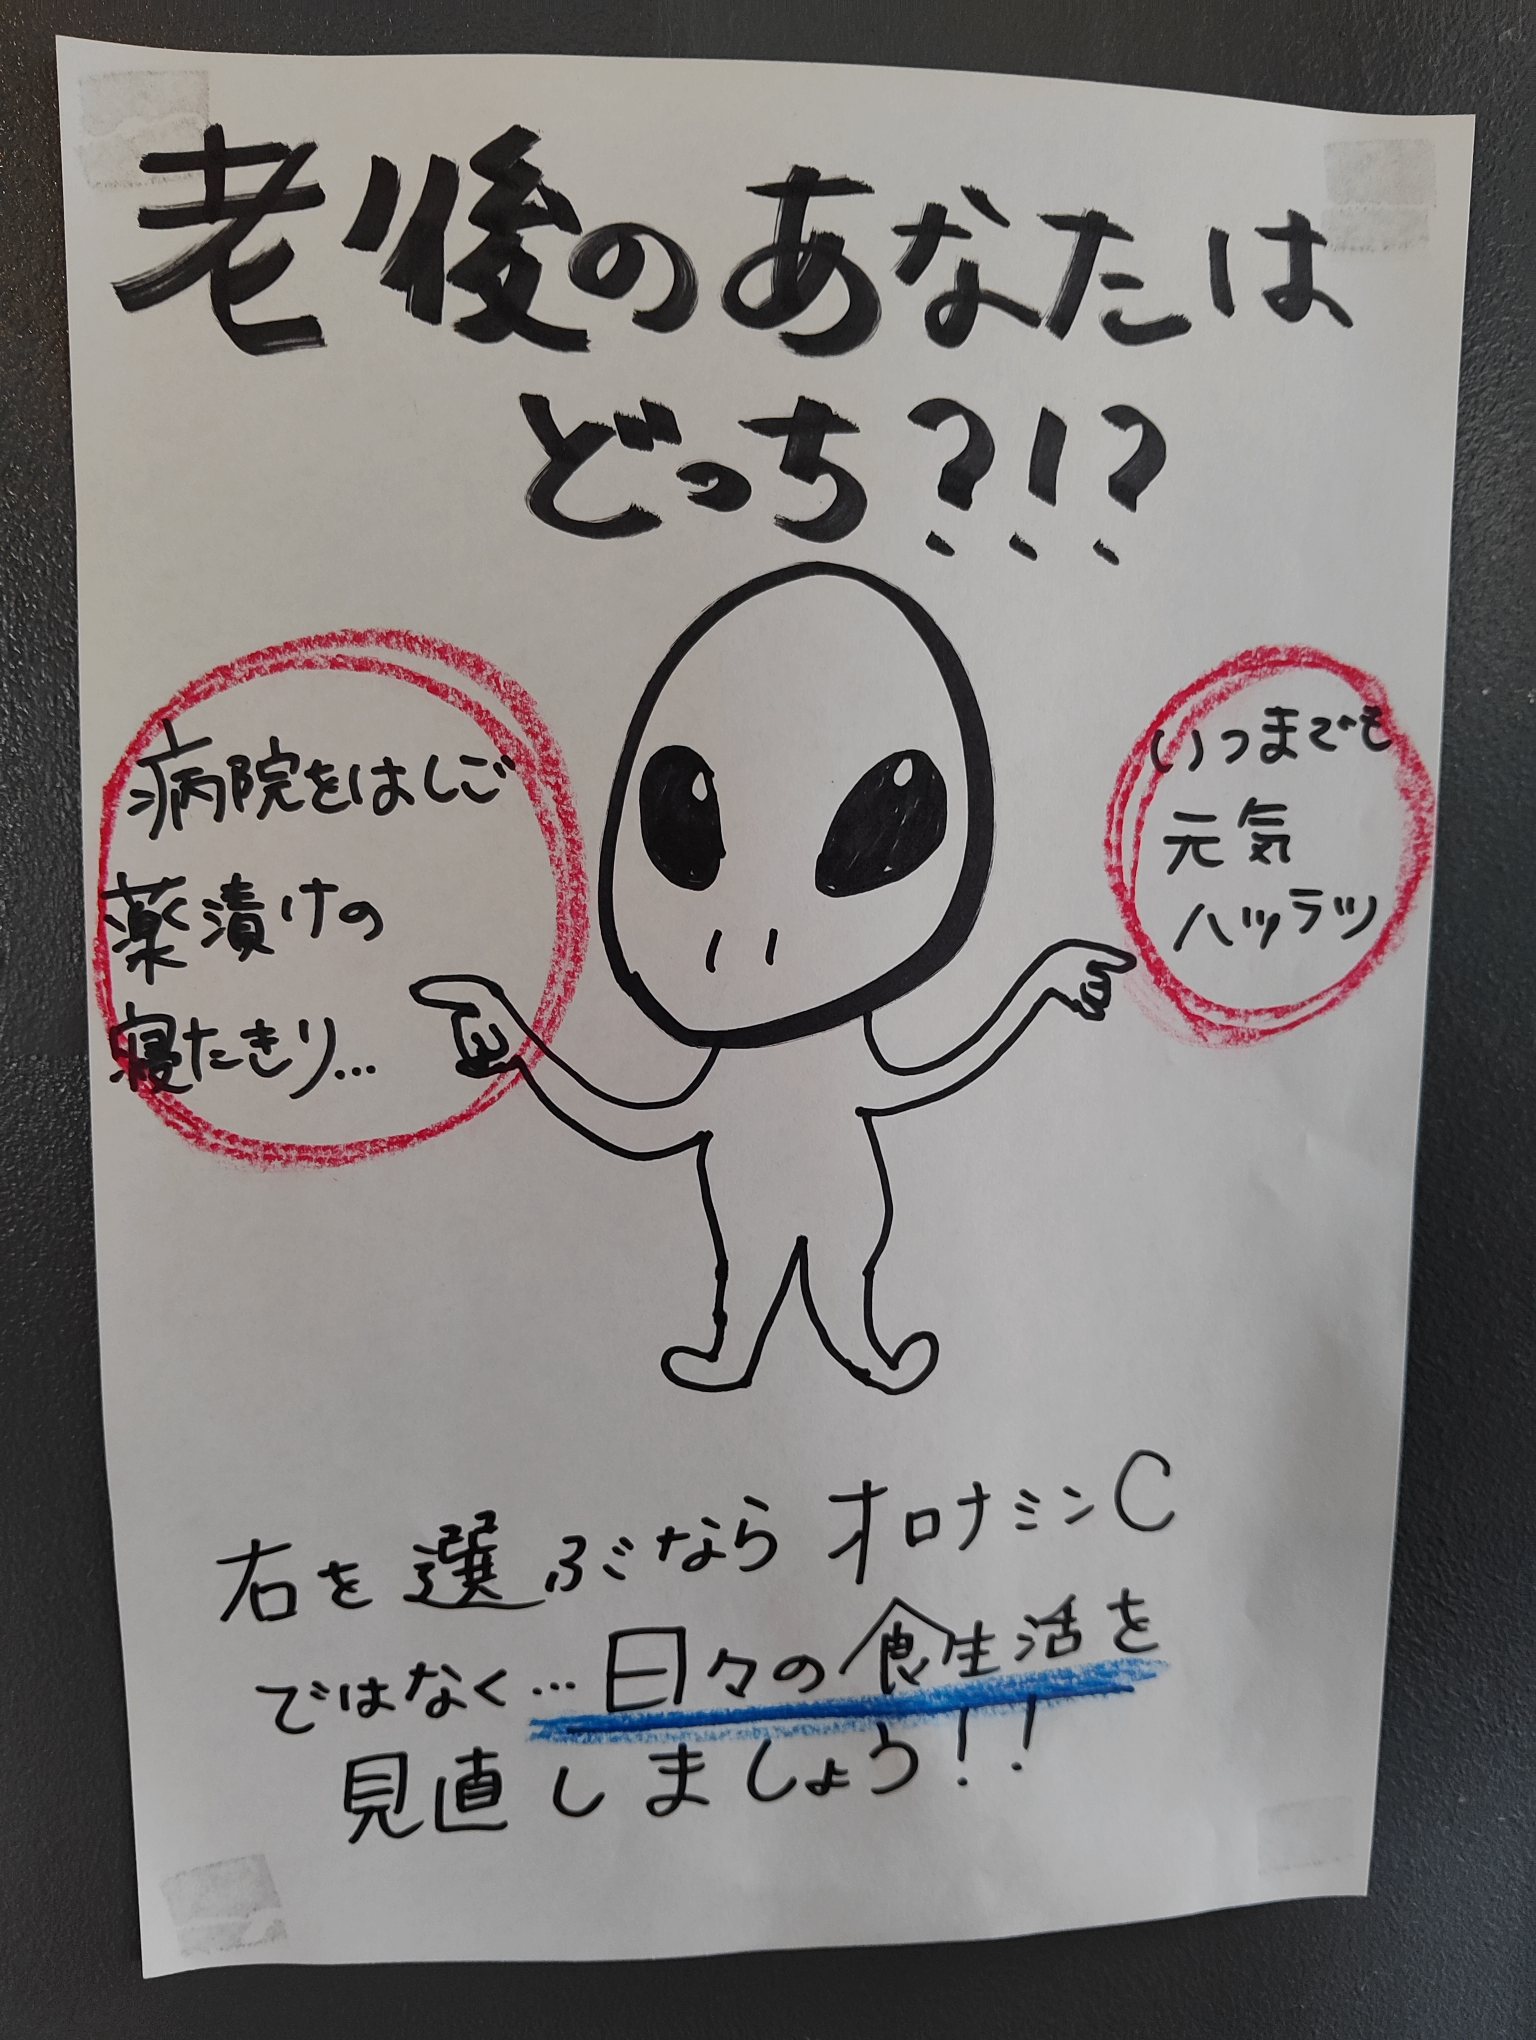 老後のあなたは
どっち?!?
病院をはしご
薬漬けの
寝たきり...
いつまでも
元気
ハツラツ
右を選ぶならオロナミンC
ではなく...日々の食生活を
見直しましょう!!